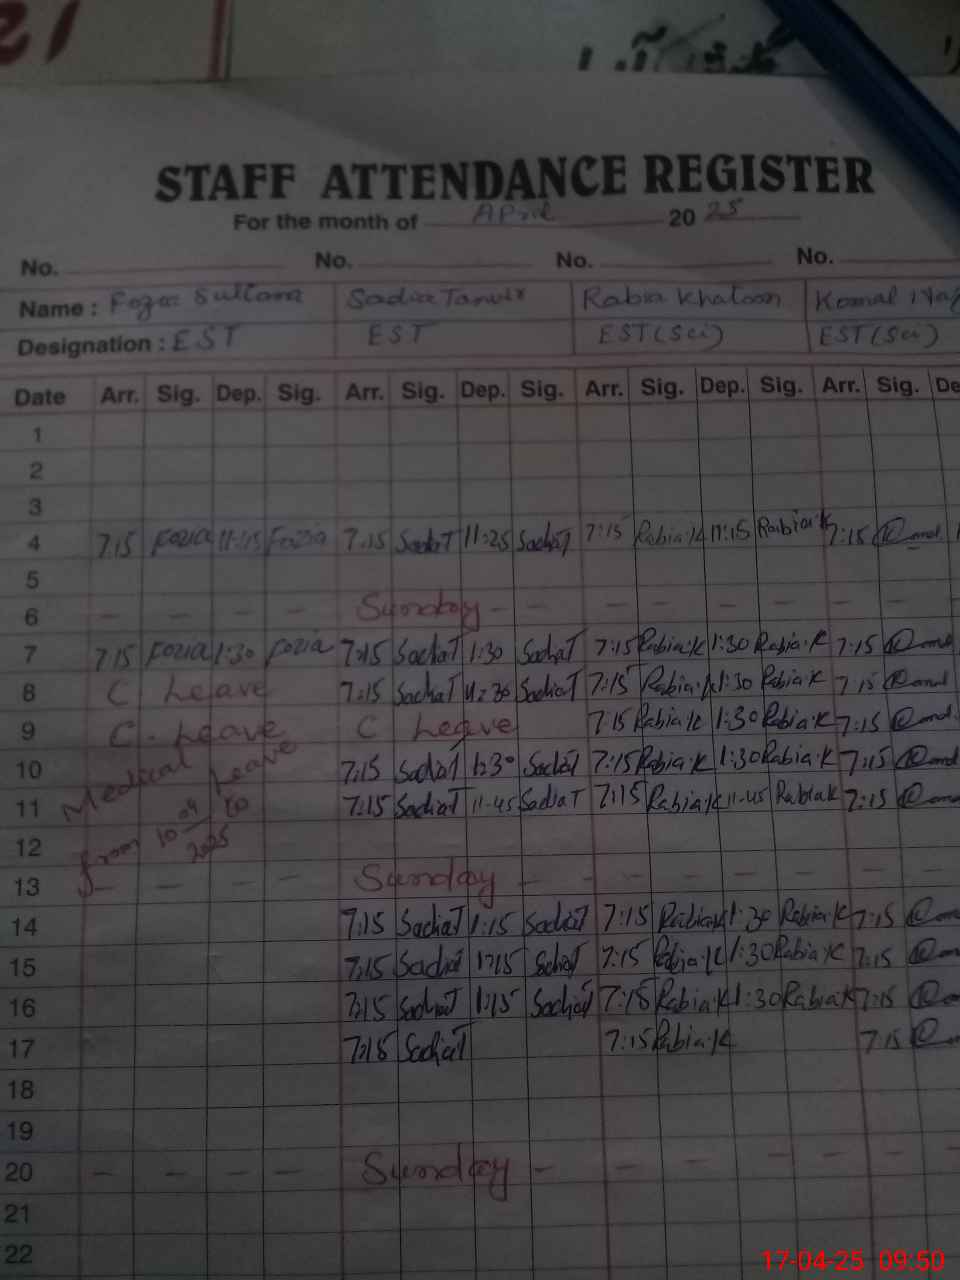 STAFF ATTENDANCE REGISTER
For the month of April 20 25
No. No. No. No.
Name : Fozia Sultana Sadia Tanvir Rabia Khatoon Komal
Designation : EST EST EST (Sci) EST (Sci)
Date Arr. Sig. Dep. Sig. Arr. Sig. Dep. Sig. Arr. Sig. Dep. Sig. Arr. Sig. De
1
2
3
4 7:15 Fozia 11:15 Fozia 7:15 SadiaT 11:25 SadiaT 7:15 Rabia.K 11:15 Rabia K 7:15
5
6 – – – – Sunday – – – – – – – –
7 7:15 Fozia 1:30 Fozia 7:15 SadiaT 1:30 SadiaT 7:15 Rabia.K 1:30 Rabia.K 7:15
8 C Leave 7:15 SadiaT 12:30 SadiaT 7:15 Rabia.K 1:30 Rabia.K 7:15
9 C. Leave C Leave 7:15 Rabia.K 1:30 Rabia.K 7:15
10 Medical Leave 7:15 SadiaT 1:30 SadiaT 7:15 Rabia.K 1:30 Rabia.K 7:15
11 7:15 SadiaT 11-45 SadiaT 7:15 Rabia.K 11-45 RabiaK 7:15
12 from 10 04 2025 to
13 – – – – Sunday – – – – – – – –
14 7:15 SadiaT 1:15 SadiaT 7:15 Rabia.K 1:30 Rabia.K 7:15
15 7:15 SadiaT 1:15 SadiaT 7:15 Rabia.K 1:30 Rabia.K 7:15
16 7:15 SadiaT 1:15 SadiaT 7:15 Rabia.K 1:30 RabiaK 7:15
17 7:15 SadiaT 7:15 Rabia.K 7:15
18
19
20 – – – – Sunday – – – – – – –
21
22
17-04-25 09:50